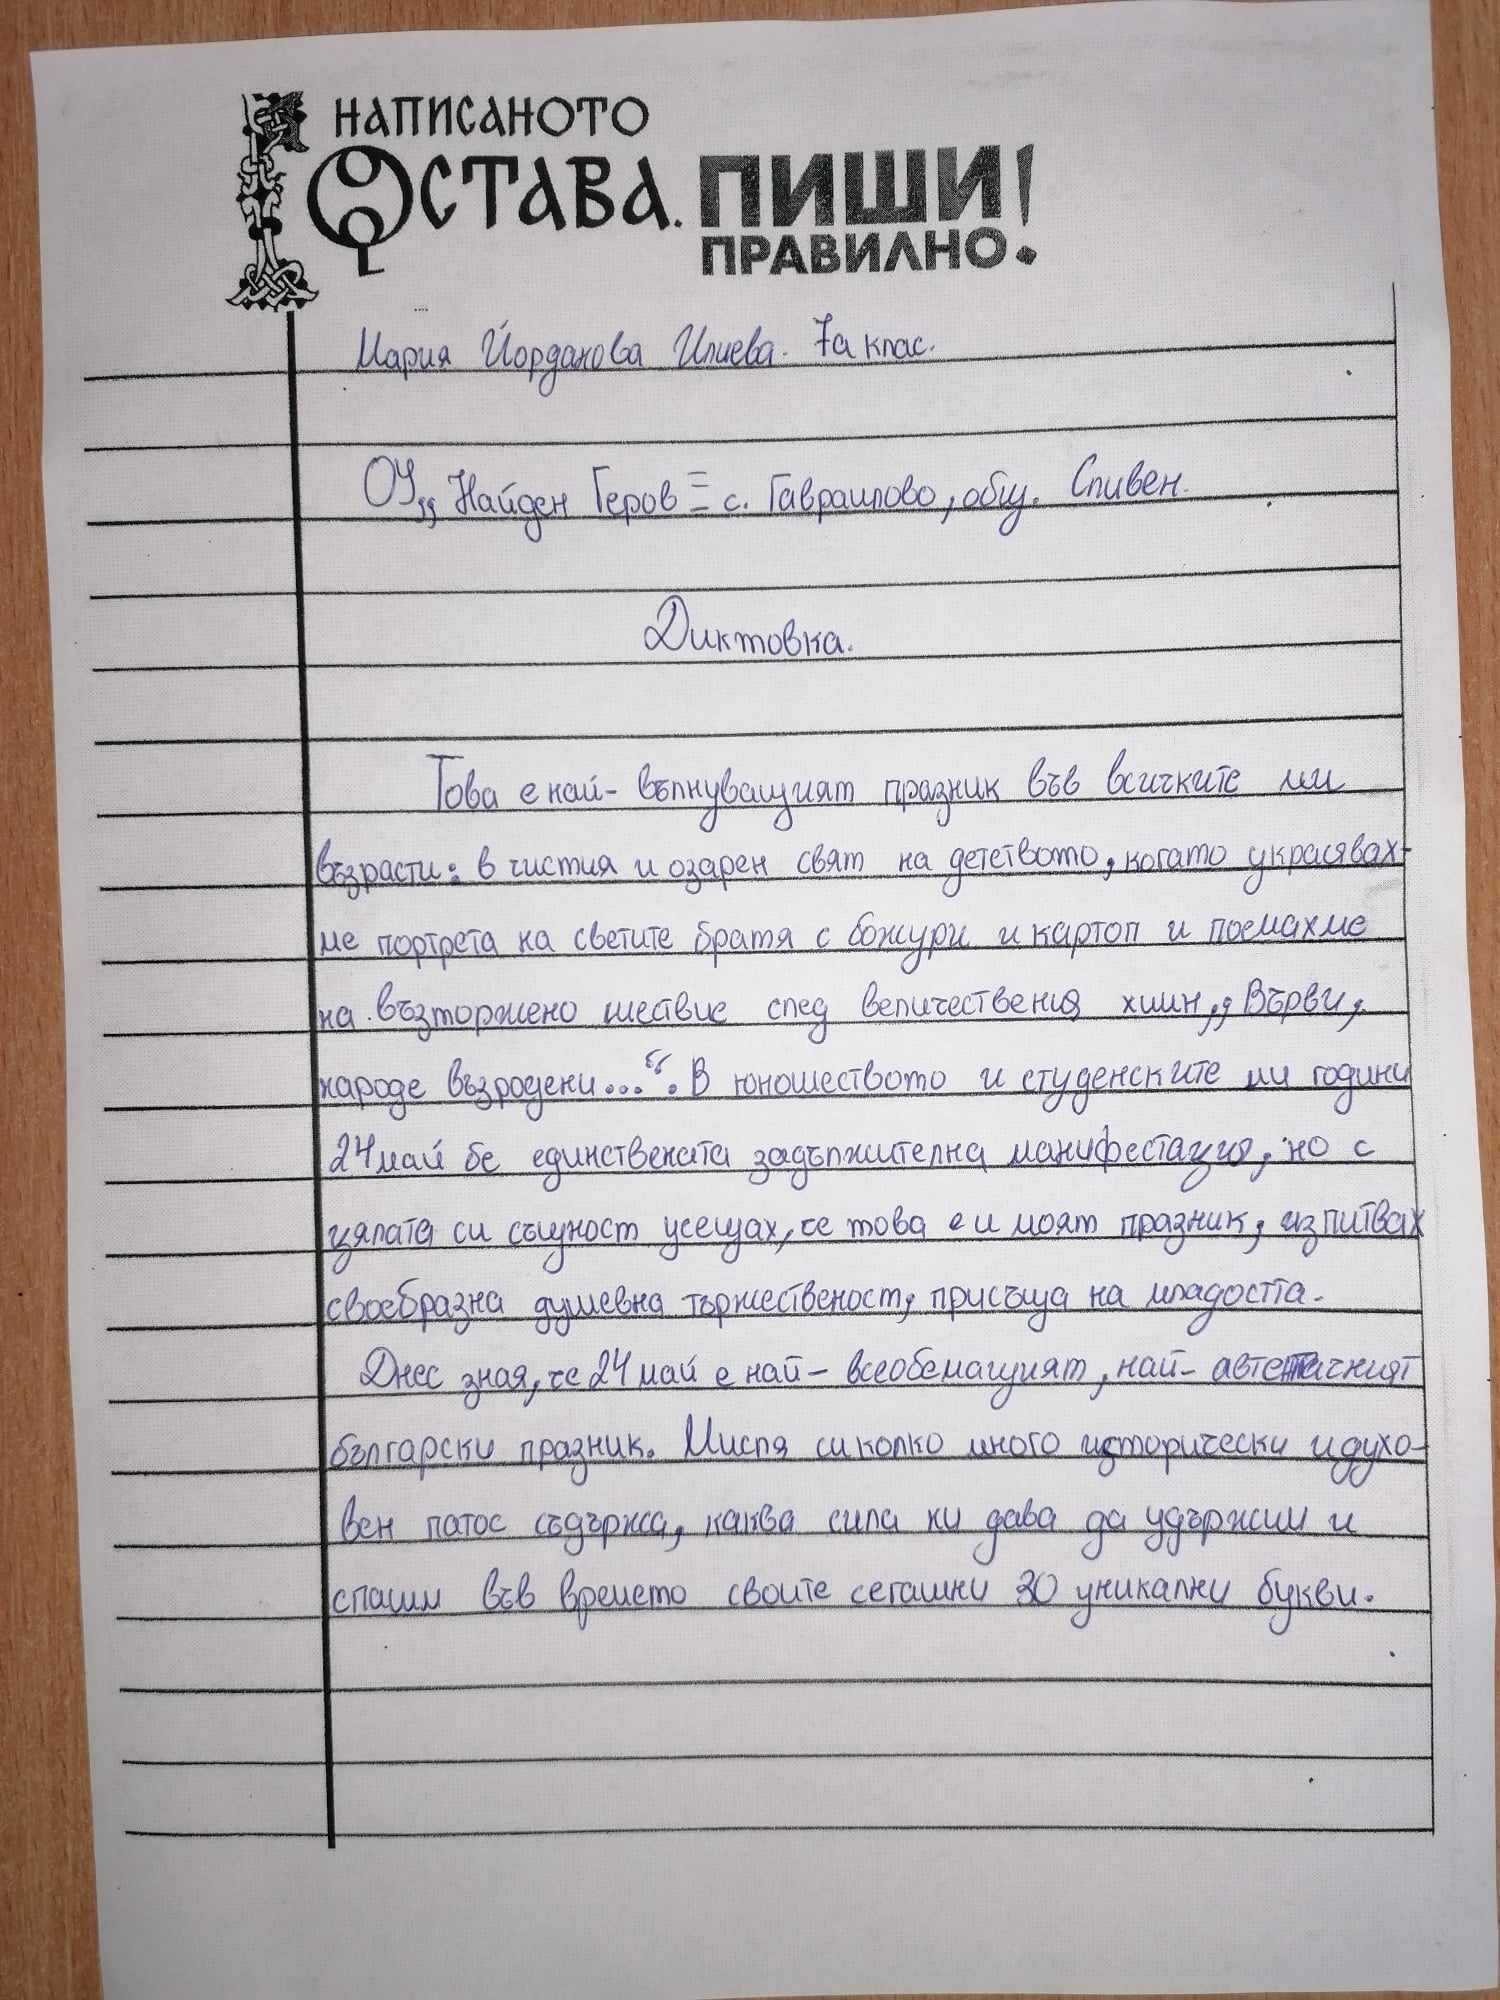 НАПИСАНОТО
ОСТАВА. ПИШИ
ПРАВИЛНО!
Мария Йорданова Илиева. 7а клас.
ОУ „Найден Геров" – с. Гавраилово, общ. Сливен.
Диктовка.
Това е най- вълнуващият празник във всичките ми
възрасти: в чистия и озарен свят на детството, когато украсявах-
ме портрета на светите братя с божури и картоп и поемахме
на възторжено шествие след величествения химн „Върви,
народе възродени...“. В юношеството и студенските ми години
24 май бе единствената задължителна манифестация, но с
цялата си същност усещах, че това е и моят празник, изпитвах
своебразна душевна тържественост, присъща на младостта.
Днес зная, че 24 май е най- всеобемащият, най- автентичният
български празник. Мисля си колко много исторически и духо-
вен патос съдържа, каква сила ни дава да удържим и
спасим във времето своите сегашни 30 уникални букви.